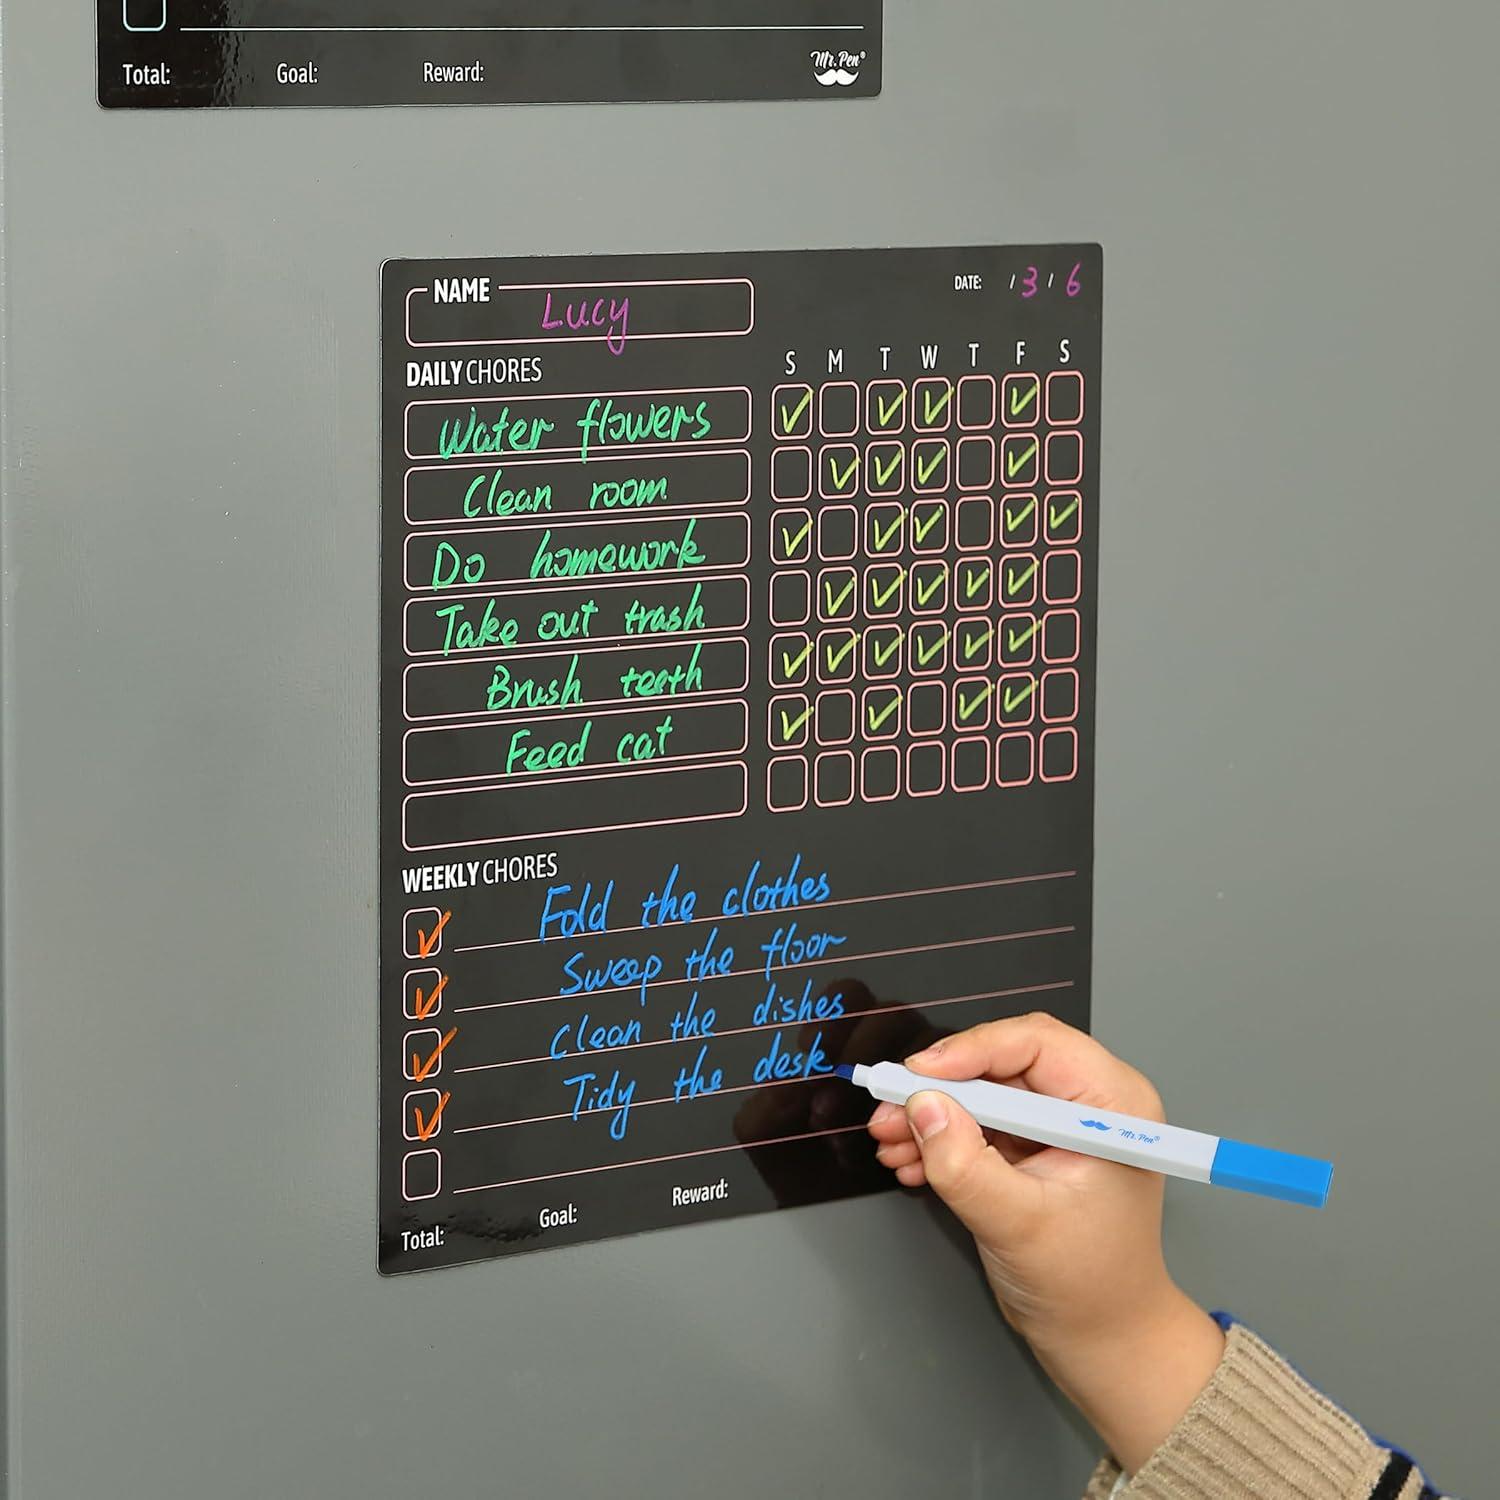 Total: Goal: Reward: Mr. Pen®
NAME Lucy DATE: / 3 / 6
DAILY CHORES S M T W T F S
Water flowers
Clean room
Do homework
Take out trash
Brush teeth
Feed cat
WEEKLY CHORES
Fold the clothes
Sweep the floor
Clean the dishes
Tidy the desk
Mr. Pen®
Total: Goal: Reward: